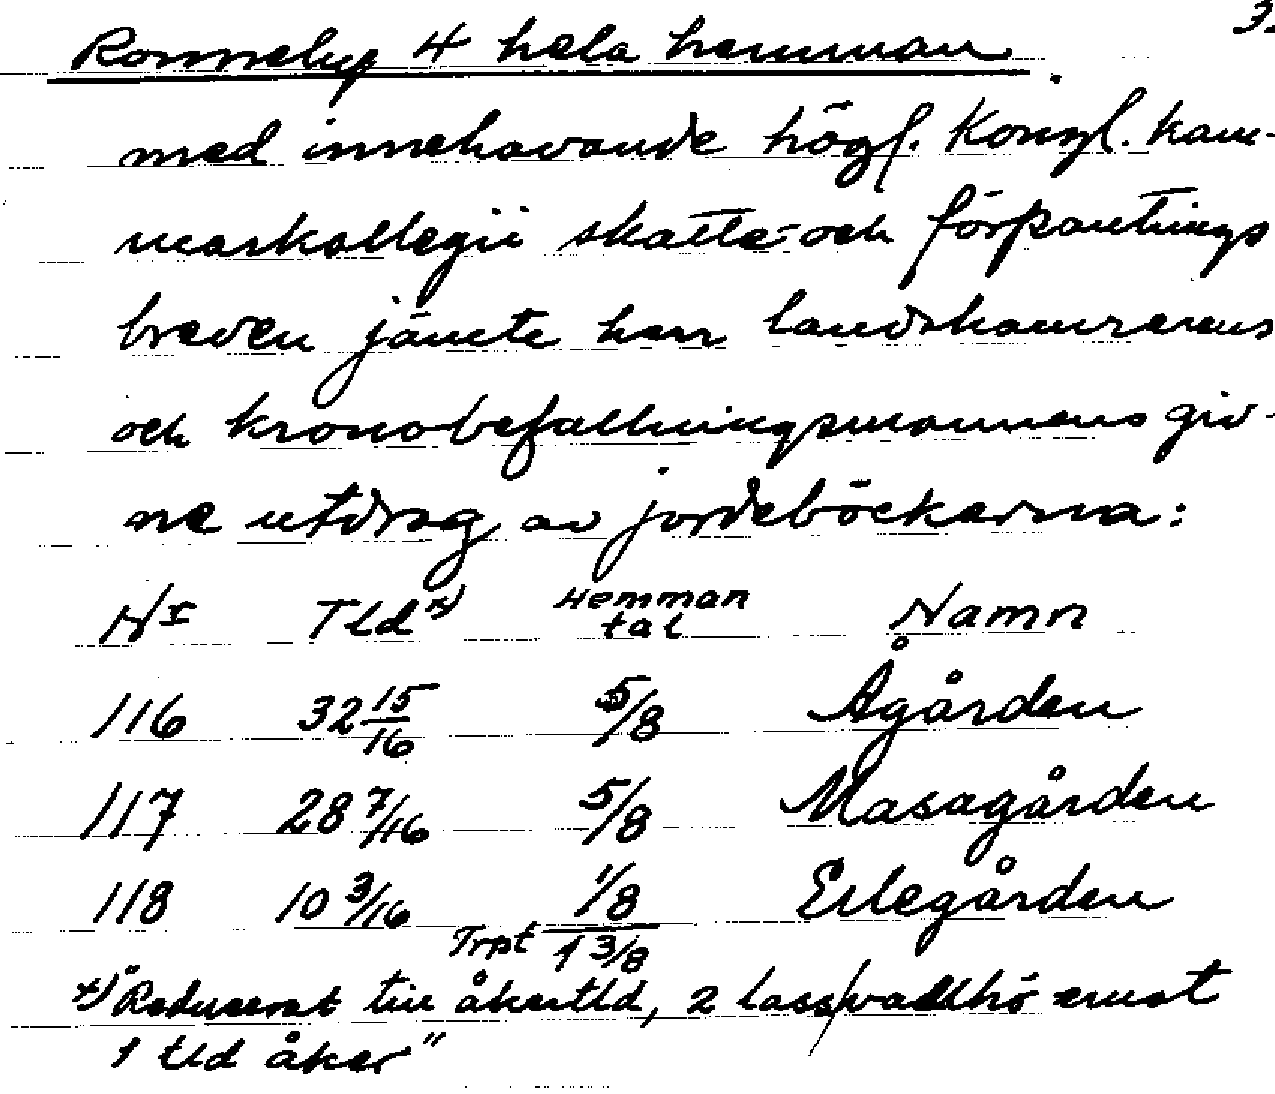 3.
Ronneby 4 hela hemman.
med innehavande högl. Kongl. kam-
markollegii skatte- och förpantnings
breven jämte herr landskamrerens
och kronobefallningsmannens giv-
ne utdrag av jordeböckerna:
Nr Tld x) Hemman tal Namn
116 32 15/16 5/8 Ågården
117 28 7/16 5/8 Masagården
118 10 3/16 1/8 Erlegården
Trpt 1 3/8
x) "Reducerat till åkertld, 2 lass vallhö emot
1 tld åker"